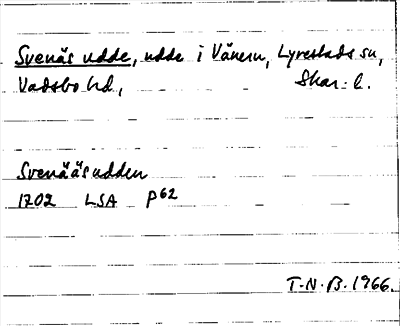 Svenäs udde, udde i Vänern, Lyrestads sn,
Vadsbo hd, Skar. l.
Svenääsudden
1702 LSA P62
T-N.B. 1966.